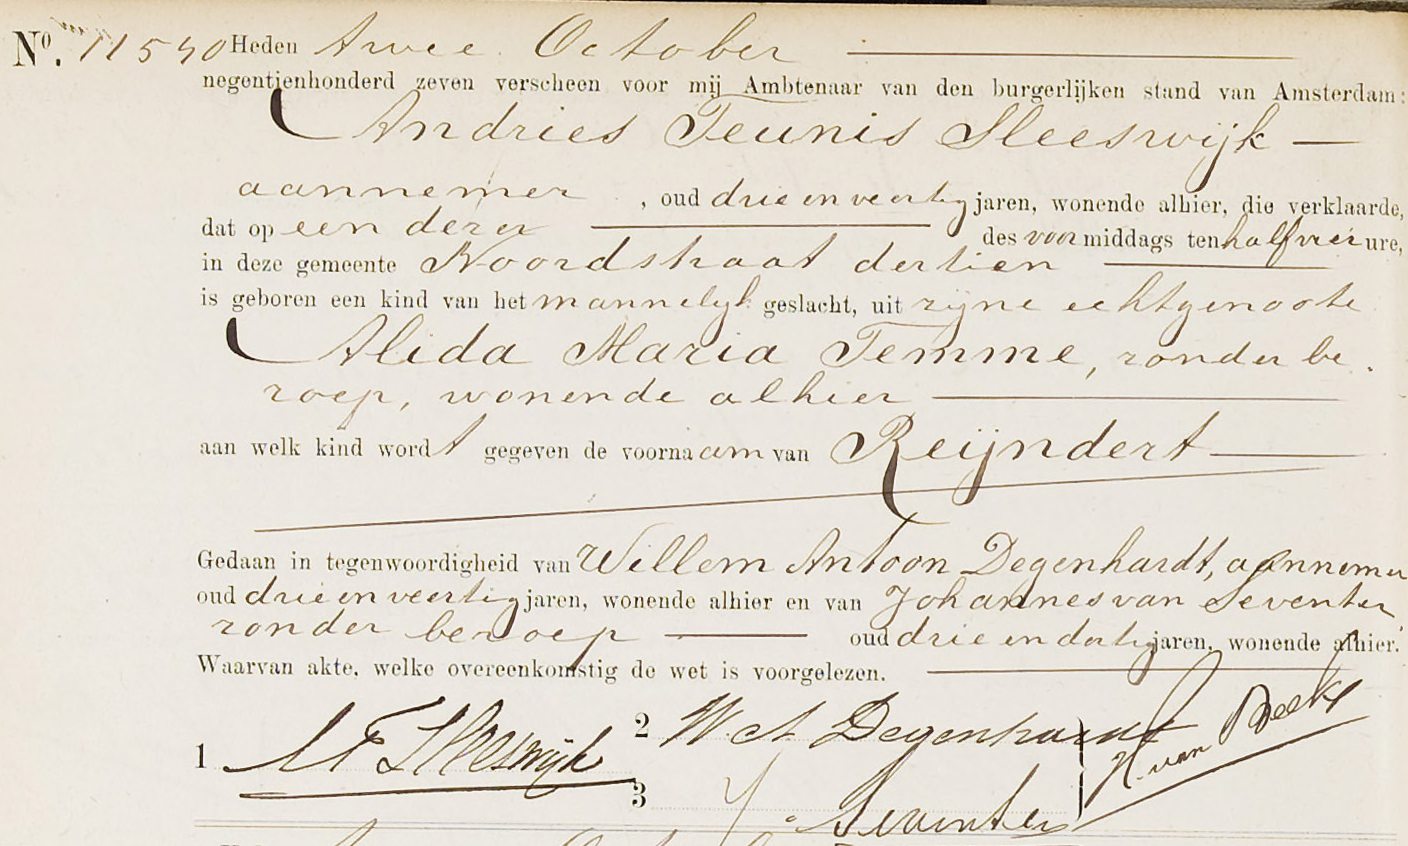 Nº. 11540 Heden twee October
negentienhonderd zeven verscheen voor mij Ambtenaar van den burgerlijken stand van Amsterdam:
Andries Teunis Sleeswijk
aannemer, oud drie en veertig jaren, wonende alhier, die verklaarde,
dat op een dezer des voormiddags ten half vier ure,
in deze gemeente Noordstraat dertien
is geboren een kind van het mannelyk geslacht, uit zyne echtgenoote
Alida Maria Temme, zonder be
roep, wonende alhier
aan welk kind wordt gegeven de voornaam van Reijndert
Gedaan in tegenwoordigheid van Willem Antoon Degenhardt, aannemer
oud drie en veertig jaren, wonende alhier en van Johannes van Seventer
zonder beroep oud drie en dertig jaren, wonende alhier.
Waarvan akte, welke overeenkomstig de wet is voorgelezen.
1 A T Sleeswijk 2 W. A Degenhardt H. van Beek
3 J. v. Seventer